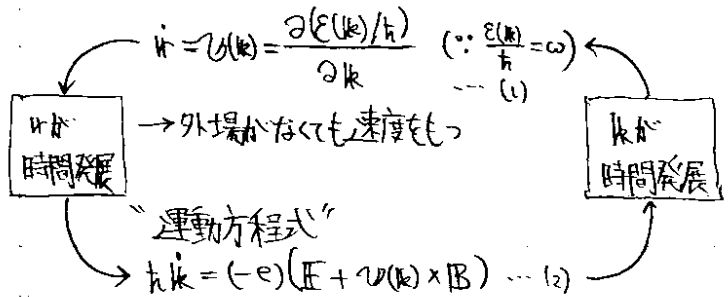 ṙ = v(k) = ∂(ε(k)/ħ)/∂k (∵ ε(k)/ħ = ω) … (1)
rが
時間発展
→外場がなくても速度をもつ
kが
時間発展
“運動方程式”
ħk̇ = (-e)(E + v(k) × B) … (2)